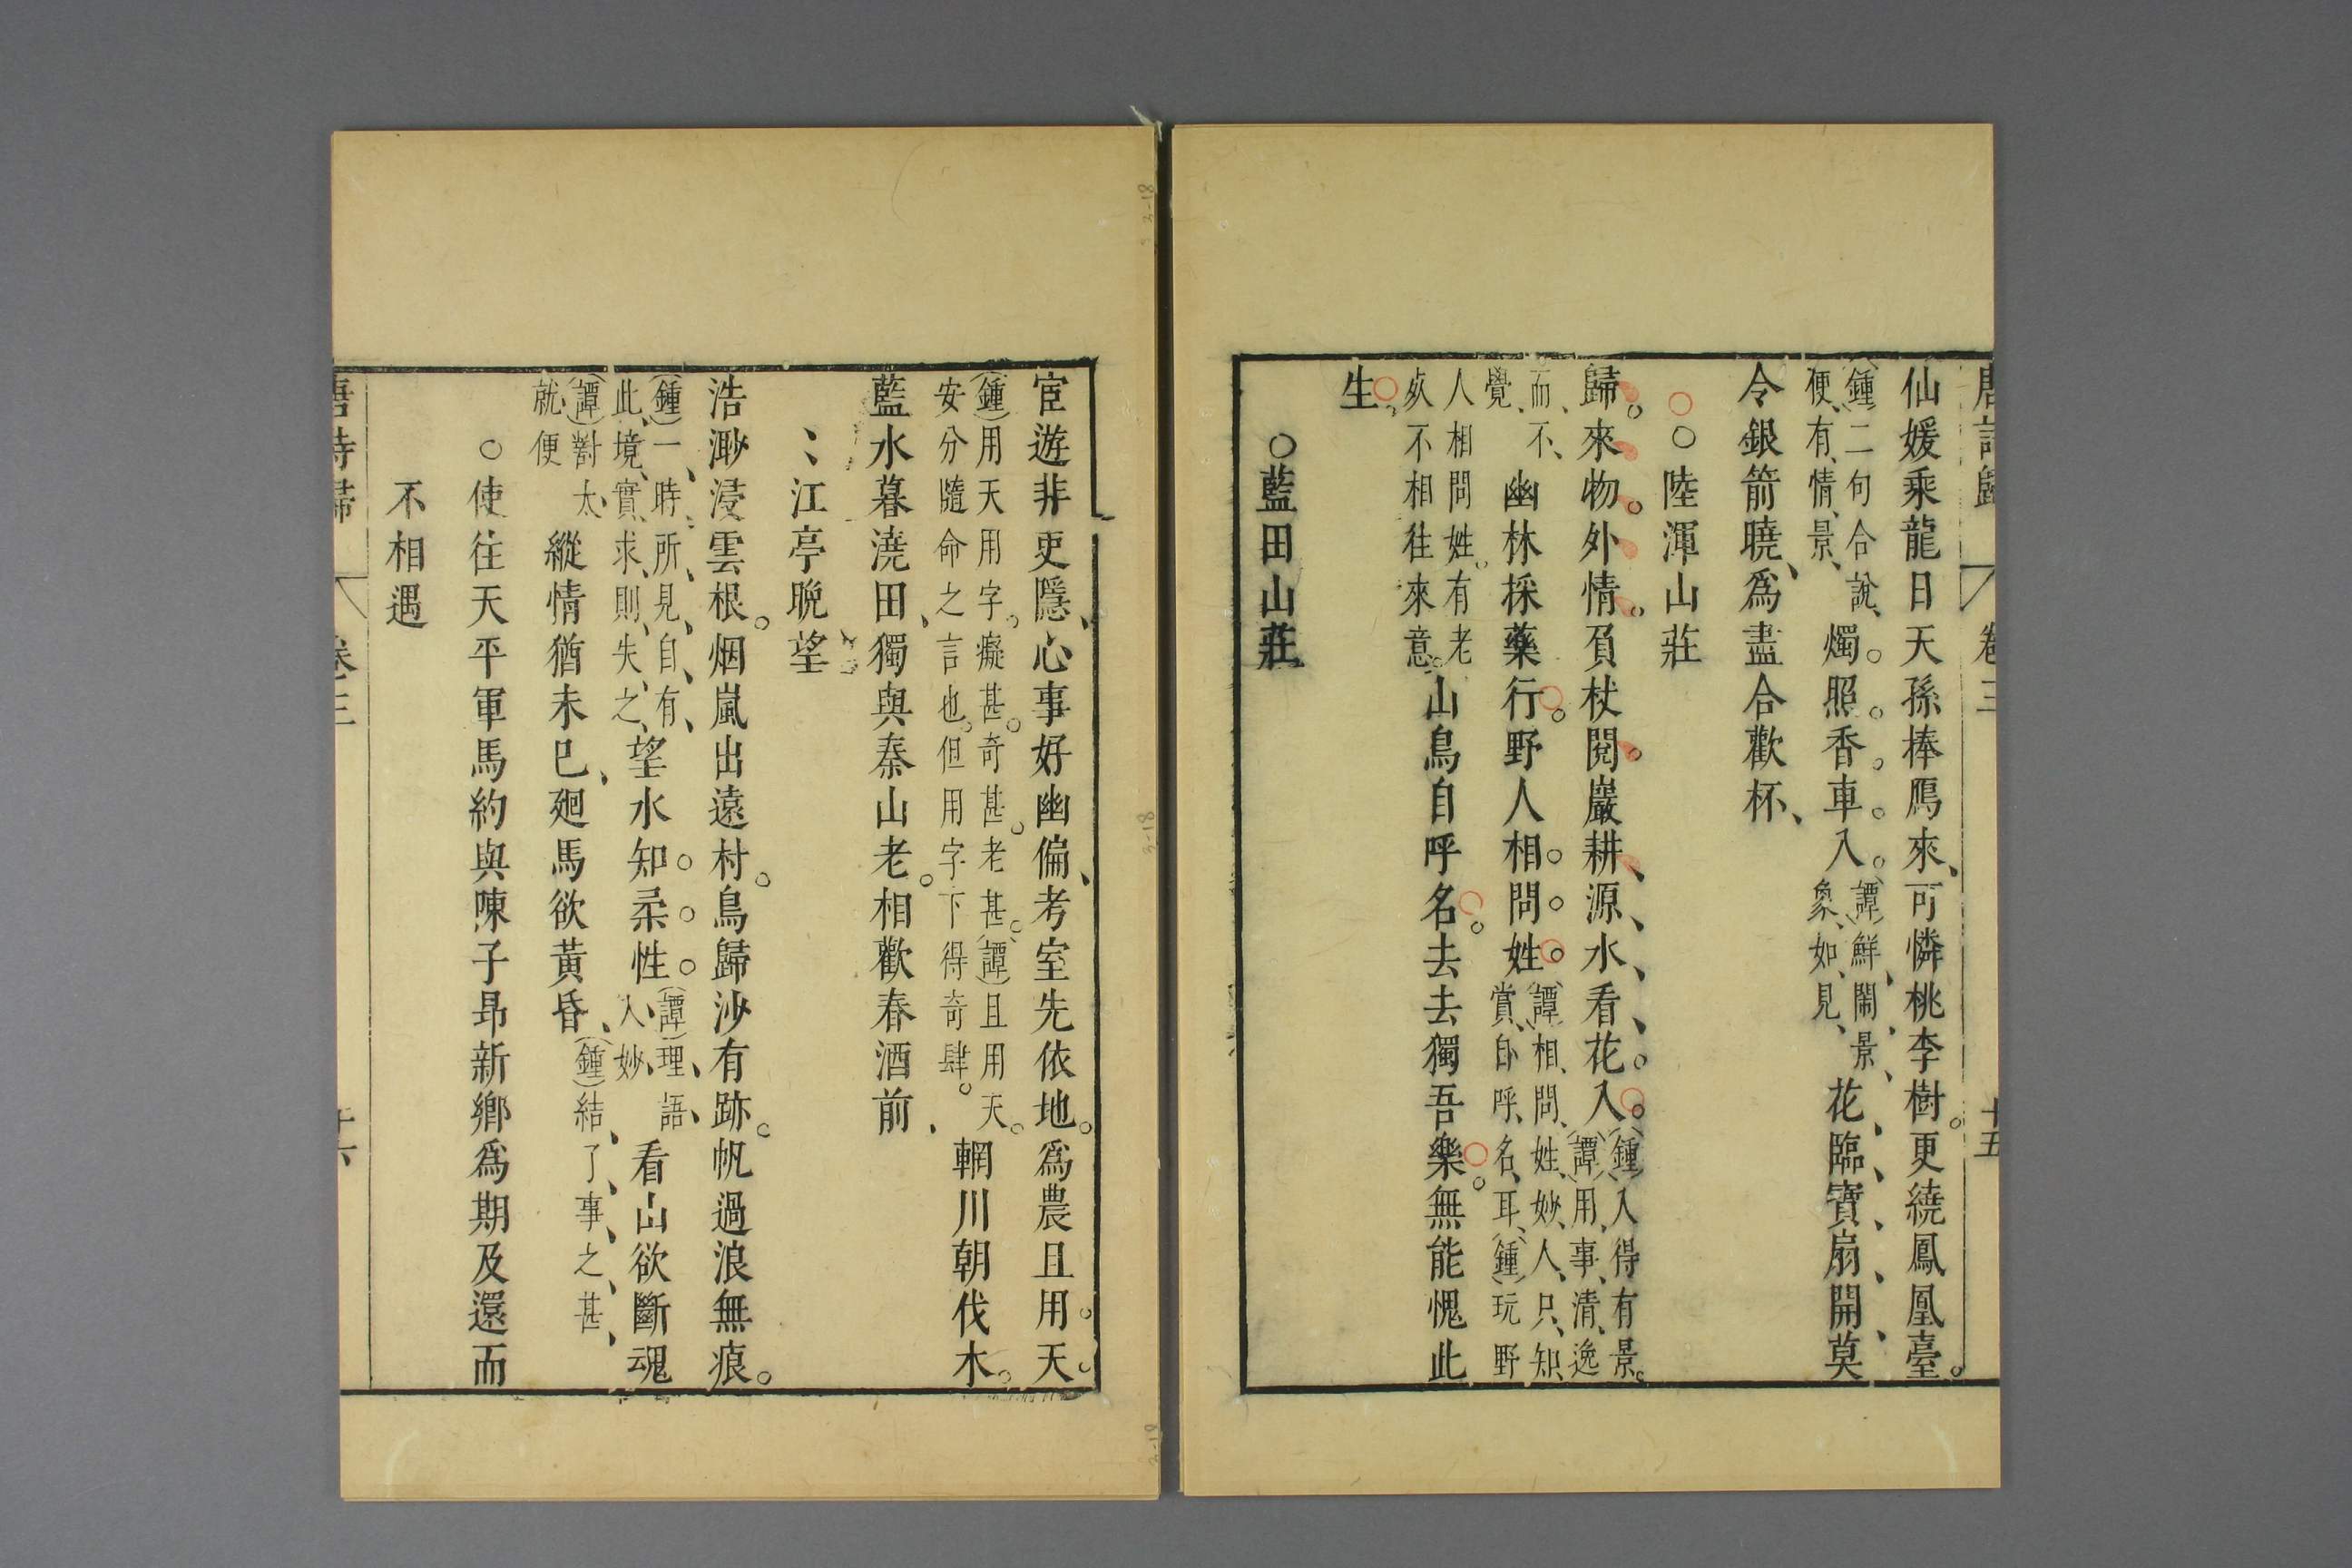 唐詩歸 卷三 十五
仙媛乘龍日天孫捧鴈來、可憐桃李樹。更繞鳳凰臺。
(鍾)二句合說、
便、有、情、景、
燭。照。香。車。入。
(譚)鮮、鬧、景、
象、如、見、
花、臨、寶、扇、開、莫
令銀箭曉、爲盡合歡杯、
○○陸渾山莊
歸。來物。外情。負杖閱。巖耕、源、水、看、花。入。
(鍾)入得有景。
(譚)用、事、清、逸
而、不、
覺、
幽林採藥行。野人相。問。姓。
(譚)相、問、姓、妙、人、只、知、
賞、自呼、名、耳、(鍾)玩野
人相問姓。有老
死不相往來意。
山鳥自呼名。去去獨吾樂。無能愧此
生。
○藍田山莊
宦遊非吏隱、心事好幽偏、考室先依地。爲農且用。天。
(鍾)用天用字。癡甚。奇甚。老甚。(譚)且用天。
安分隨命之言也。但用字下得奇肆。
輞川朝伐木。
藍水暮澆田、獨與秦山老。相歡春酒前、
、、江亭晚望
浩渺浸雲根。烟嵐出遠村。鳥歸沙有跡。帆過浪無痕。
(鍾)一、時、所、見、自、有、
此、境、實、求、則、失、之、
望水知。柔。性。
(譚)理、語、
入、妙、
看山欲斷魂
(譚)對太、
就便
縱情猶未已、廻馬欲黃昏、
(鍾)結、了、事、之、甚、
○使往天平軍馬約與陳子昂新鄉爲期及還而
不相遇
唐詩歸 卷三 十六